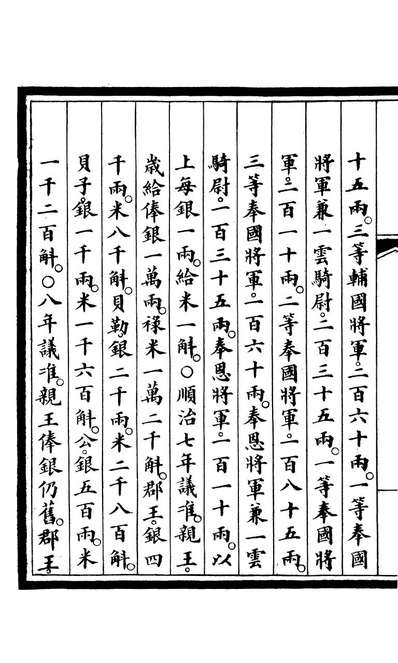 十五兩。三等輔國將軍。二百六十兩。一等奉國
將軍兼一雲騎尉。二百三十五兩。一等奉國將
軍。二百一十兩。二等奉國將軍。一百八十五兩。
三等奉國將軍。一百六十兩。奉恩將軍兼一雲
騎尉。一百三十五兩。奉恩將軍。一百一十兩。以
上每銀一兩。給米一斛。○順治七年議准。親王。
歲給俸銀一萬兩。祿米一萬二千斛。郡王。銀四
千兩。米八千斛。貝勒。銀二千兩。米二千八百斛。
貝子。銀一千兩。米一千六百斛。公。銀五百兩。米
一千二百斛。○八年議准。親王俸銀仍舊。郡王。